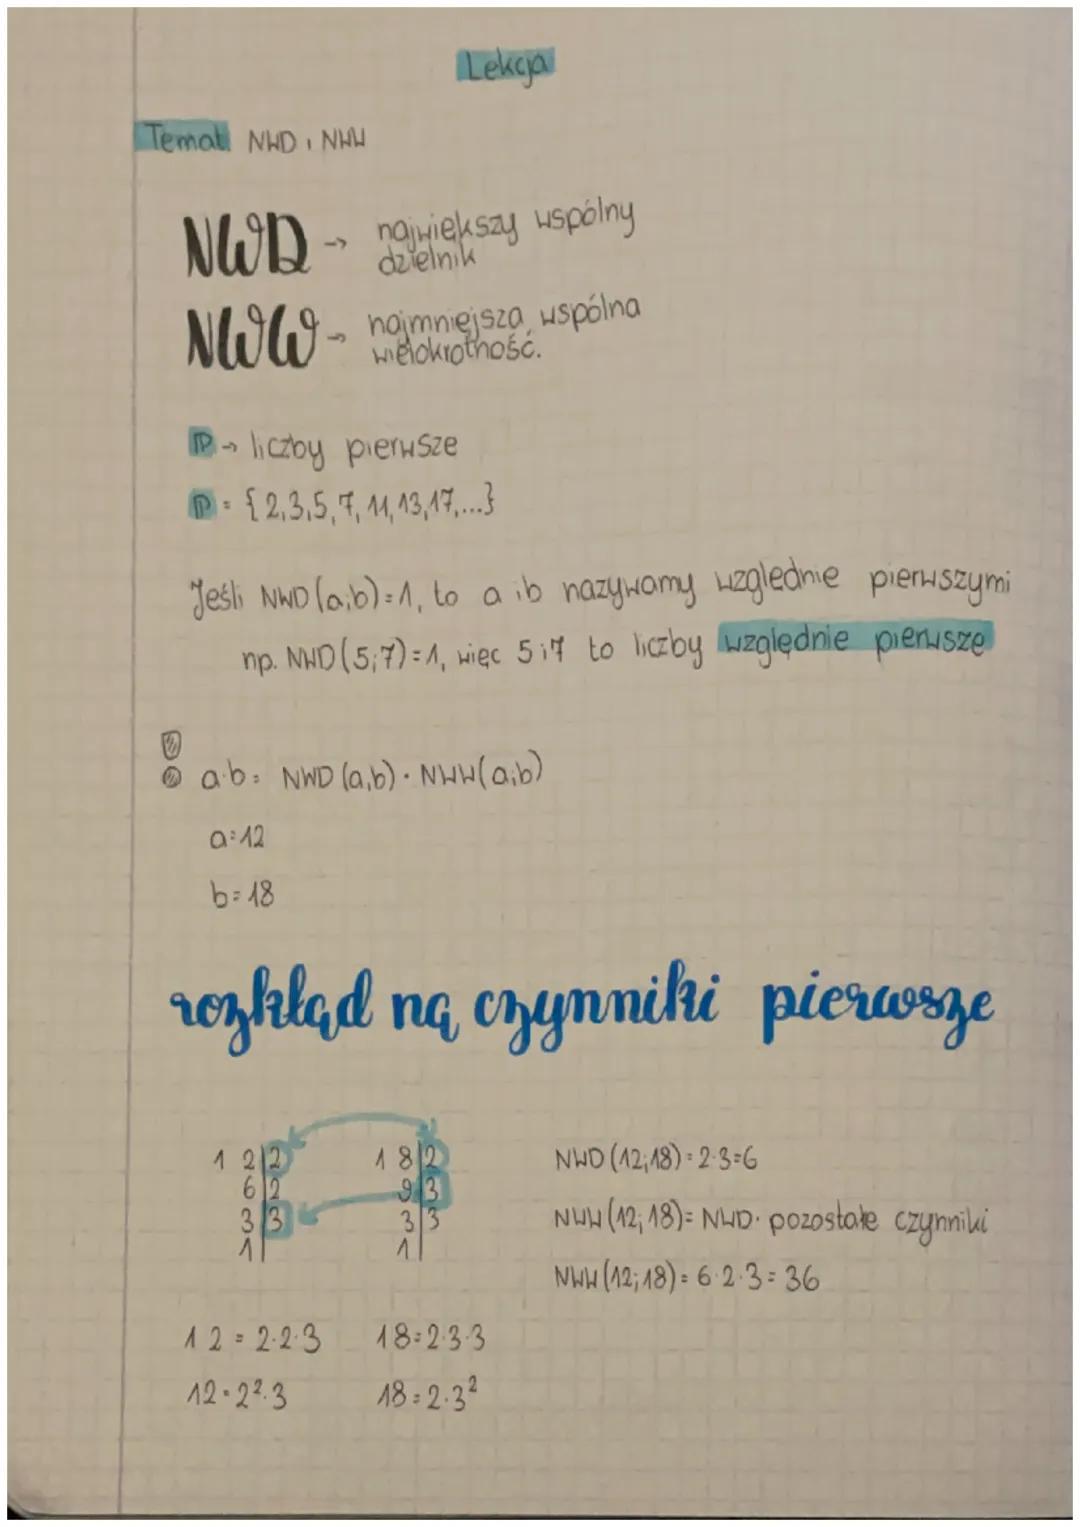 Lekcja
Temat NWD i NWW
NWD → największy wspólny
dzielnik
NWW → najmniejsza wspólna
wielokrotność.
ℙ → liczby pierwsze
ℙ = {2,3,5,7,11,13,17,...}
Jeśli NWD(a;b)=1, to a i b nazywamy względnie pierwszymi
np. NWD(5;7)=1, więc 5 i 7 to liczby względnie pierwsze
! a·b = NWD(a,b)·NWW(a;b)
a=12
b=18
rozkład na czynniki pierwsze
12|2 18|2 NWD(12;18)=2·3=6
6|2 9|3
3|3 3|3 NWW(12;18)=NWD·pozostałe czynniki
1| 1|
NWW(12;18)=6·2·3=36
12=2·2·3 18=2·3·3
12=2²·3 18=2·3²